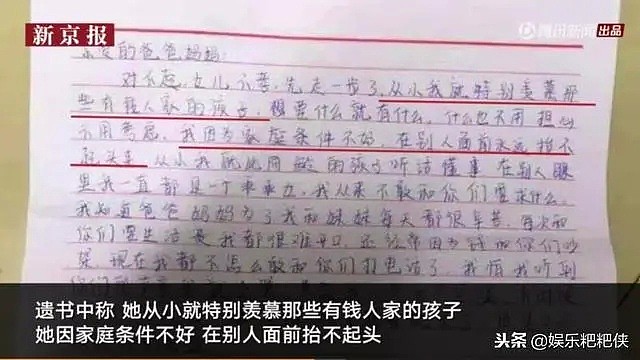 新京报
腾讯新闻 出品
亲爱的爸爸妈妈:
对不起,女儿不孝,先走一步了,从小我就特别羡慕那
些有钱人家的孩子,想要什么就有什么,什么也不用担心
不用考虑,我因为家庭条件不好,在别人面前永远抬不
起头来 从小我就比同龄的孩子听话懂事 在别人眼
里我一直都是一个乖乖女,我从来不敢和你们要求什么,
我知道爸爸妈妈为了我和妹妹每天都很辛苦,每次和
你们要生活费我都很难开口,还经常因为钱和你们吵
架 现在我都不怎么敢和你们打电话了,我怕我听到
遗书中称 她从小就特别羡慕那些有钱人家的孩子
她因家庭条件不好 在别人面前抬不起头
头条 @娱乐粑粑侠